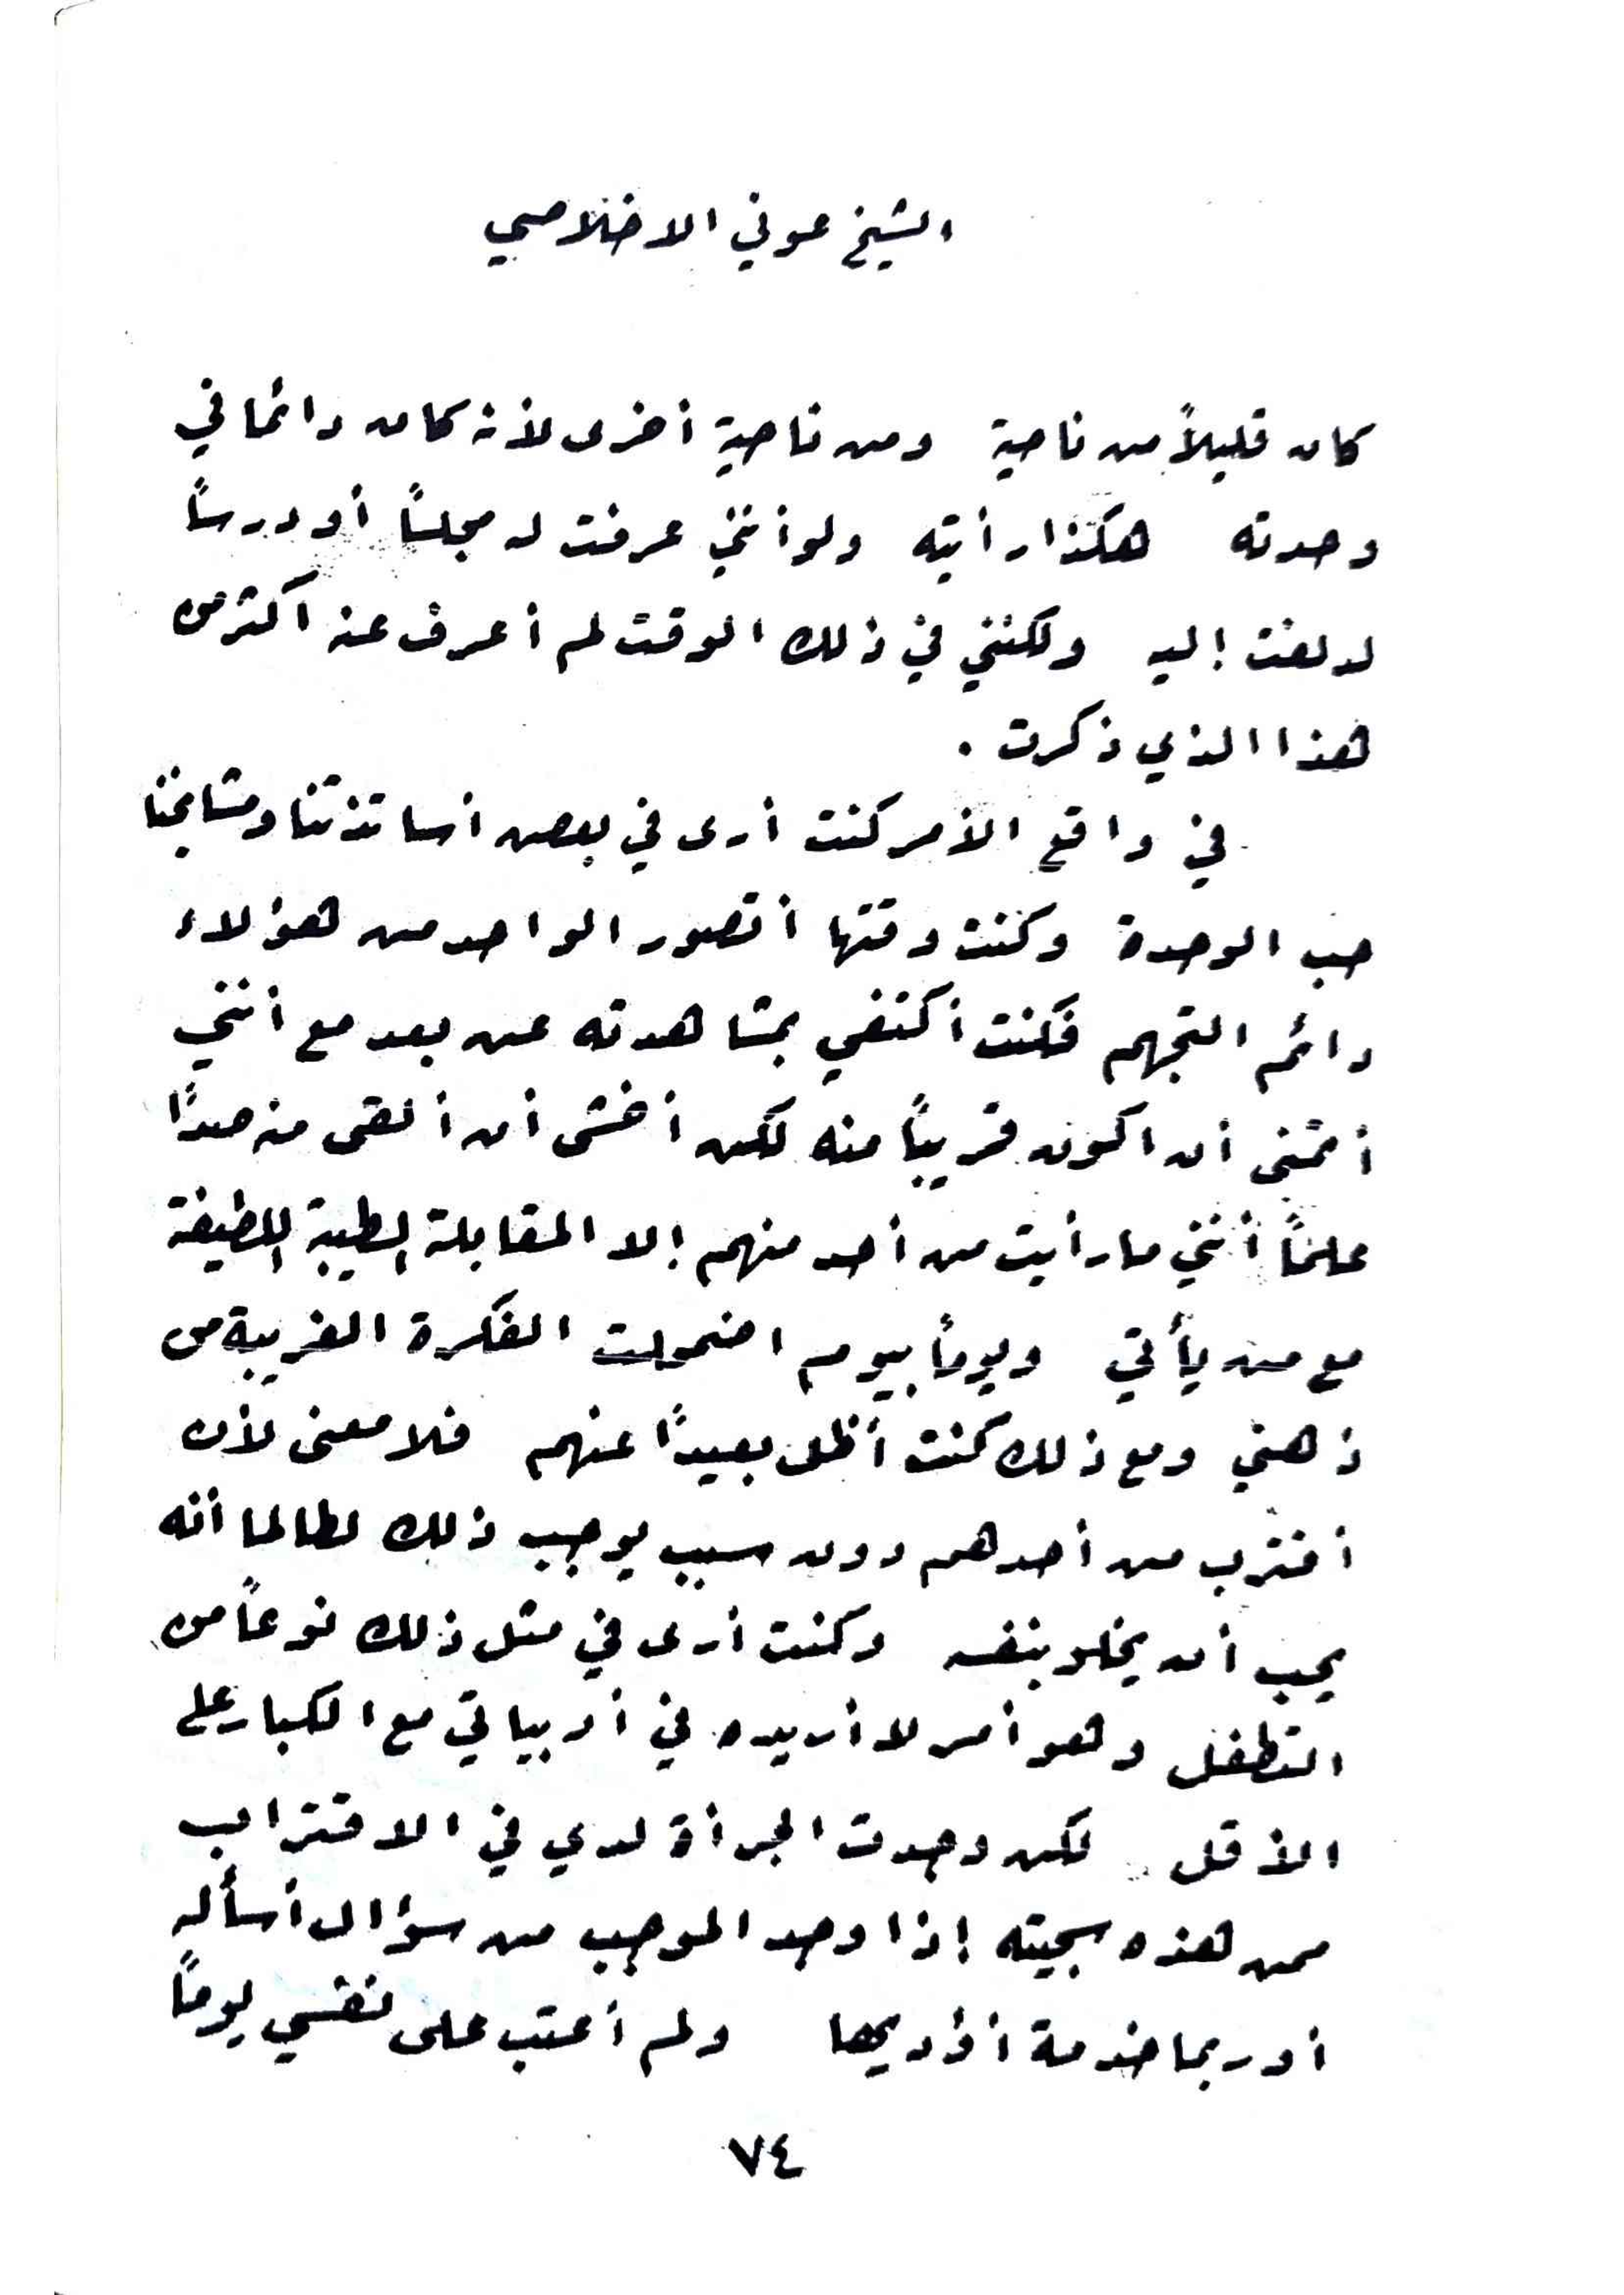 الشيخ عوني الاخلاصي
كان قليلاً من ناحية ومن ناحية أخرى لأنه كان دائمًا في
وحدته هكذا رأيته ولو أنني عرفت له مجلساً أو درساً
لدلفت إليه ولكنني في ذلك الوقت لم أعرف عنه اكثر من
هذا الذي ذكرت .
في واقع الأمر كنت أرى في بعض أساتذتنا ومشايخنا
حب الوحدة وكنت وقتها أتصور الواحد من هؤلاء
دائم التجهم فكنت أكتفي بمشاهدته عن بعد مع أنني
أتمنى أن اكون قريباً منه لكن أخشى أن ألقى منه صداً
علماً أنني ما رأيت من أحد منهم إلا المقابلة الطيبة اللطيفة
مع من يأتي ويوماً بيوم اضمحلت الفكرة الغريبة من
ذهني ومع ذلك كنت أظل بعيداً عنهم فلا معنى لأن
أقترب من أحدهم دون سبب يوجب ذلك لطالما أنه
يحب أن يخلو بنفسه وكنت أرى في مثل ذلك نوعاً من
التطفل وهو أمر لا أريده في أدبياتي مع الكبار على
الأقل لكن وجدت الجرأة لدي في الاقتراب
ممن هذه سجيته إذا وجد الموجب من سؤال أسأله
أو ربما خدمة أؤديها ولم أعتب على نفسي يوماً
٧٤